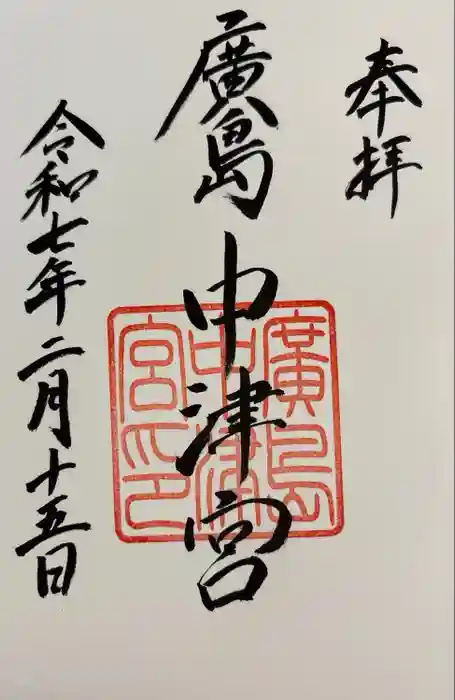 奉拝
廣島中津宮
廣島
中津
宮印
令和七年二月十五日